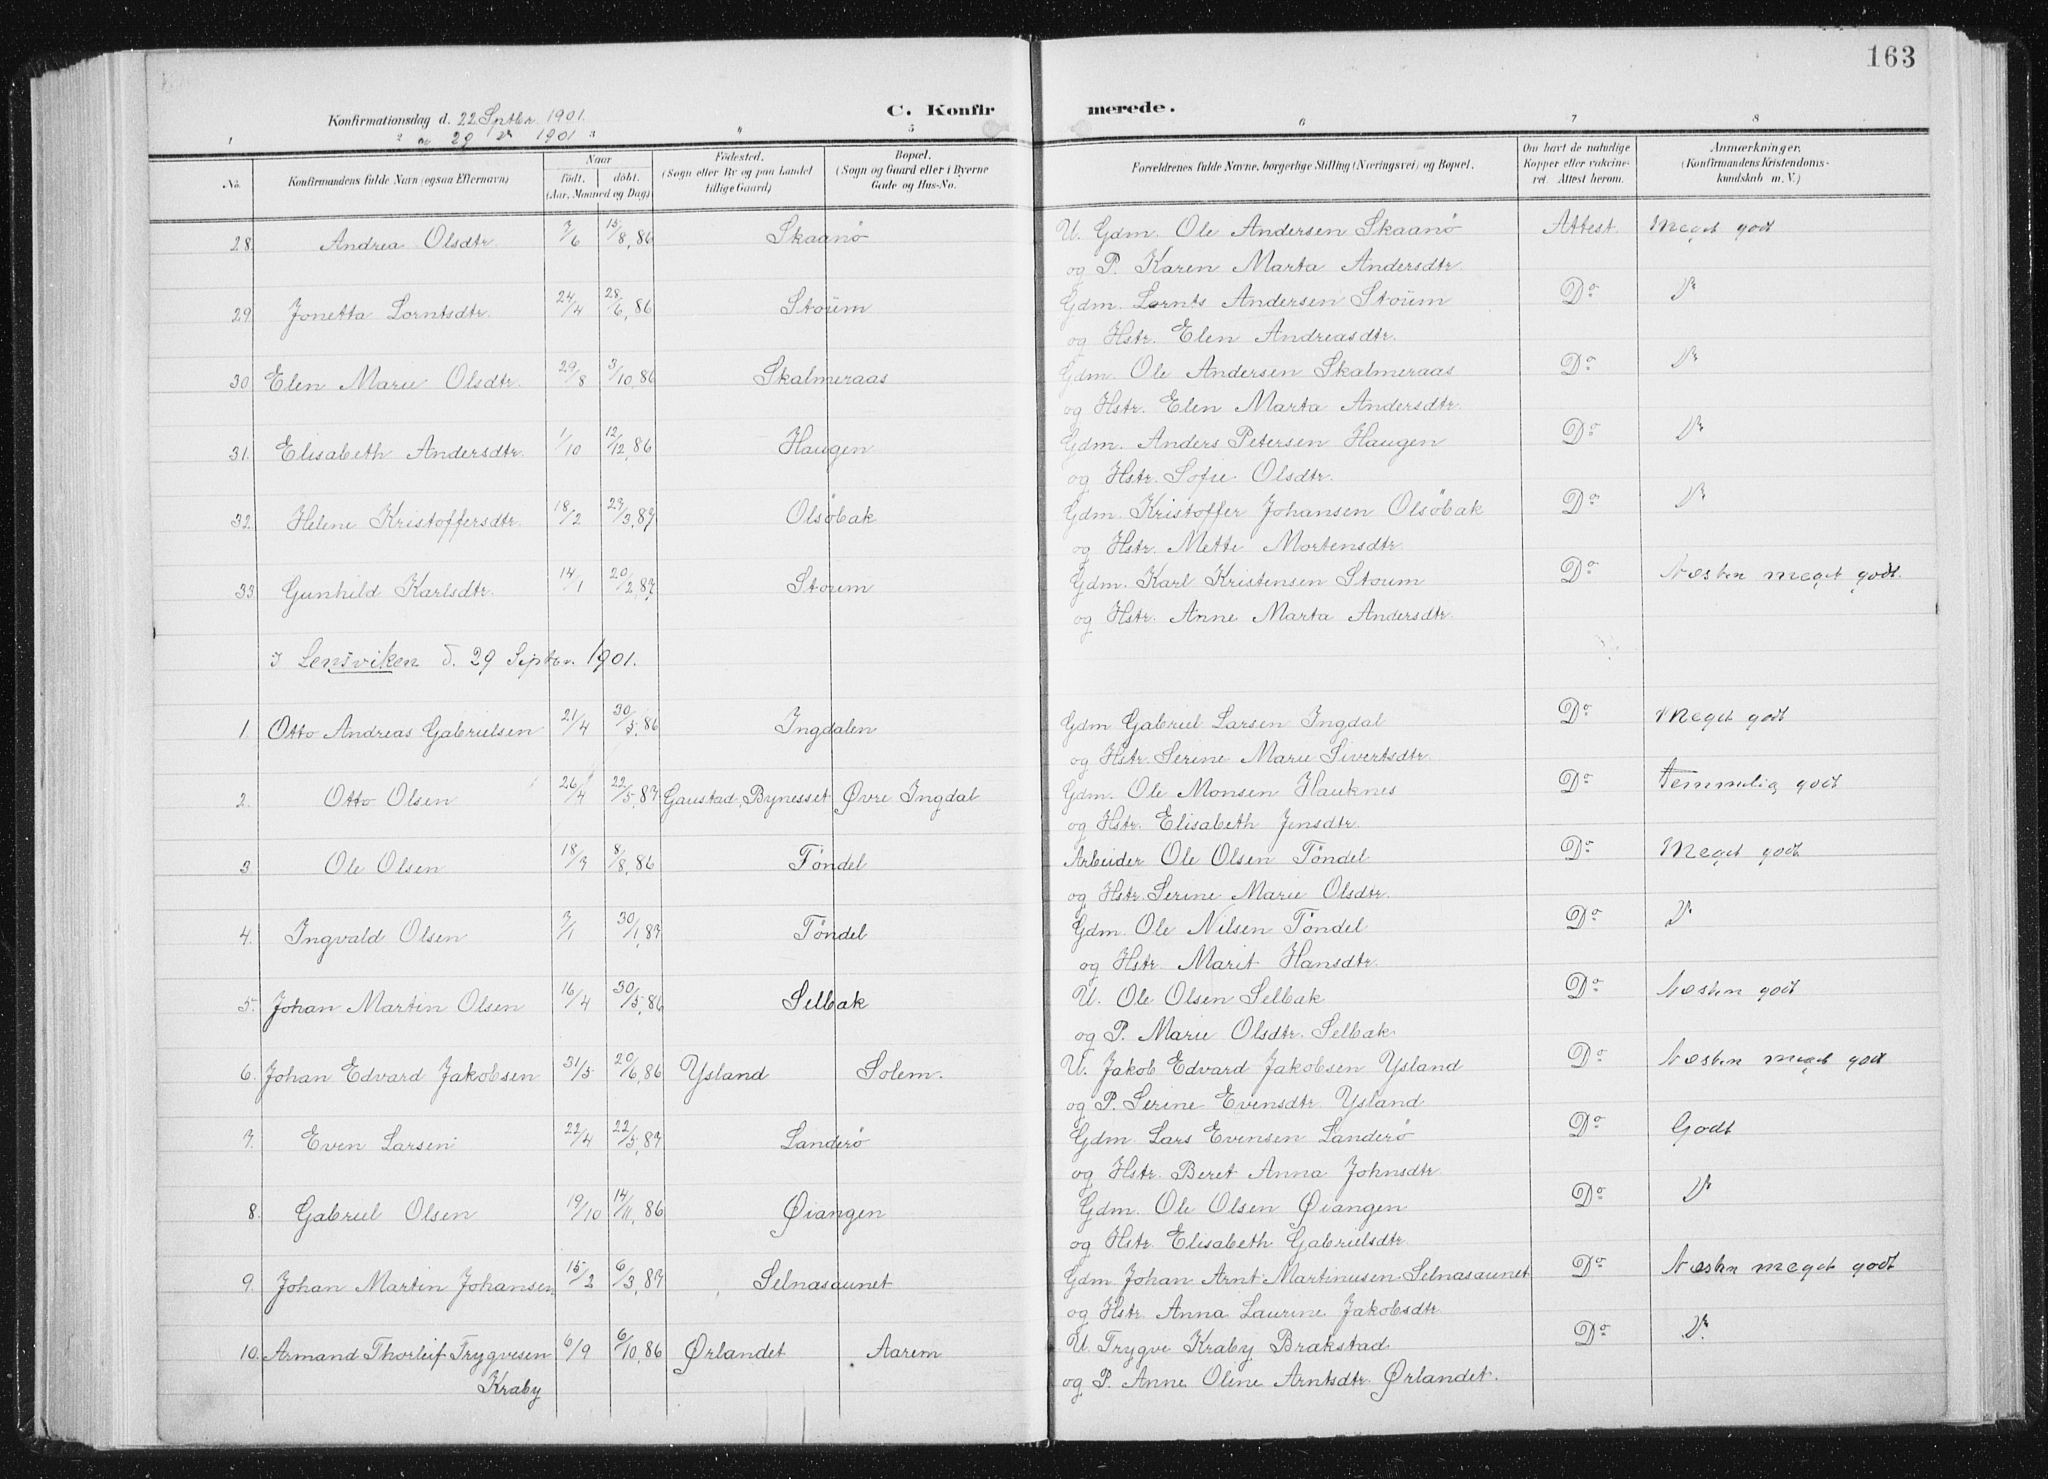 163
C. Konfirmerede.
Konfirmationsdag d. 22 Septbr. 1901.
29 1901
1 2 3 4 5 6 7 8
No. Konfirmandens fulde Navn (ogsaa Efternavn) Naar født. døbt. (Aar, Maaned og Dag) Fødested. (Sogn eller By og paa Landet tillige Gaard) Bopæl. (Sogn og Gaard eller i Byerne Gade og Hus-No. Forældrenes fulde Navne, borgerlige Stilling (Næringsvei) og Bopæl. Om havt de naturlige Kopper eller vaccineret. Attest herom. Anmærkninger. (Konfirmandens Kristendomskundskab m. V.)
28. Andrea Olsdtr. 7/6 15/8, 86 Skaanø U. Gdm. Ole Andersen Skaanø Attest. Meget godt
og P. Karen Marta Andersdtr.
29. Jonetta Lorntsdtr. 24/4 28/6, 86 Stoum Gdm. Lornts Andersen Stoum Do
og Hstr. Elen Andreasdtr.
30. Elen Marie Olsdtr. 29/8 3/10, 86 Skalmeraas Gdm. Ole Andersen Skalmeraas Do
og Hstr. Elen Marta Andersdtr.
31. Elisabeth Andersdtr. 1/10 12/12, 86 Haugen Gdm. Anders Petersen Haugen Do
og Hstr. Sofie Olsdtr.
32. Helene Kristoffersdtr. 18/2 27/3, 87 Olsöbak Gdm. Kristoffer Johansen Olsöbak Do
og Hstr. Mette Mortensdtr.
33. Gunhild Karlsdtr. 14/1 20/2, 87 Stoum Gdm. Karl Kristensen Stoum Do Næsten meget godt.
og Hstr. Anne Marta Andersdtr.
I Lensviken d. 29 Septbr. 1901.
1. Otto Andreas Gabrielsen 21/4 30/5, 86 Ingdalen Gdm Gabriel Larsen Ingdal Do Meget godt
og Hstr. Serine Marie Sivertsdtr.
2. Otto Olsen 26/4 22/5, 87 Gaustad, Bynesset Øvre Ingdal Gdm. Ole Monsen Hauknes Do Temmelig godt
og Hstr. Elisabeth Jensdtr.
3 Ole Olsen 18/7 8/8, 86 Tøndel Arbeider Ole Olsen Tøndel Do Meget godt.
og Hstr. Serine Marie Olsdtr.
4. Ingvald Olsen 7/1 30/1, 87 Tøndel Gdm. Ole Nilsen Tøndel Do
og Hstr. Marit Hansdtr.
5. Johan Martin Olsen 16/4 30/5, 86 Selbak U. Ole Olsen Selbak Do Næsten godt
og P. Marie Olsdtr. Selbak
6. Johan Edvard Jakobsen 31/5 20/6, 86 Ysland Solem. U. Jakob Edvard Jakobsen Ysland Do Næsten meget godt
og P. Serine Evensdtr. Ysland
7. Even Larsen 22/4 22/5, 87 Landerø Gdm. Lars Evensen Landerø Do Godt
og Hstr. Beret Anna Johnsdtr
8. Gabriel Olsen 19/10 14/11, 86 Øiangen Gdm. Ole Olsen Øiangen Do
og Hstr. Elisabeth Gabrielsdtr.
9. Johan Martin Johansen 15/2 6/3, 87 Selnasaunet Gdm. Johan Arnt Martinusen Selnasaunet Do Næsten meget godt
og Hstr. Anna Laurine Jakobsdtr.
10. Armand Thorleif Trygvesen 6/9 6/10, 86 Ørlandet Aarem U. Trygve Kraby Brakstad Do
Kraby og P. Anne Oline Arntsdtr. Ørlandet.